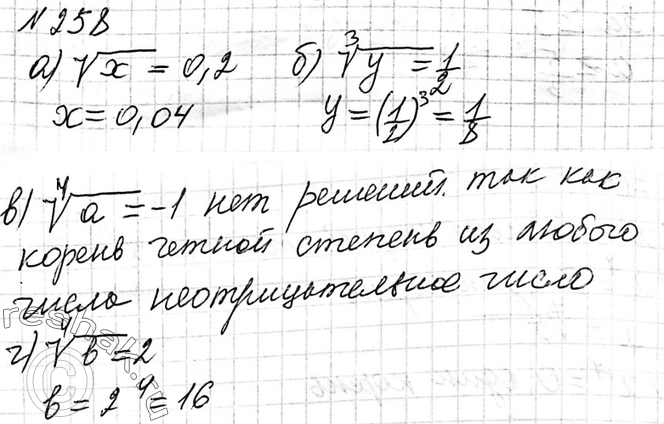 №258
а) √x = 0,2 б) ∛y = 1/2
x = 0,04 y = (1/2)³ = 1/8
в) ∜a = -1 нет решений. так как
корень четной степень из любого
числа неотрицательное число
г) ∜в = 2
в = 2⁴ = 16
©reshak.ru